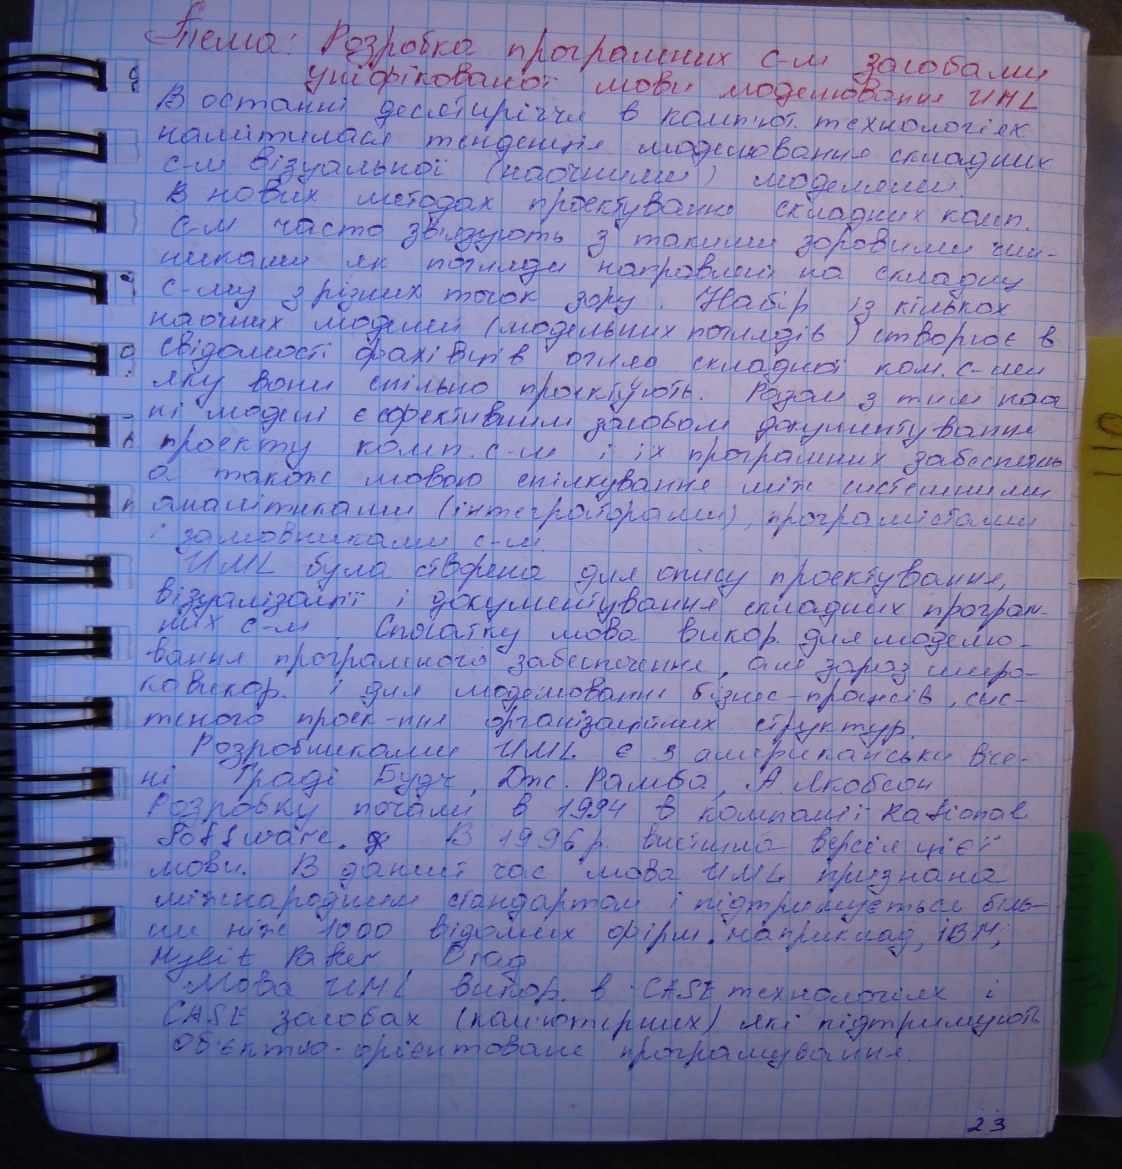 Тема: Розробка програмних с-м засобами
уніфікованої мови моделювання UML
В останні десятиріччя в комп'ют. технологіях
намітилася тенденція моделювання складних
с-м візуальної (наочними) моделями.
В нових методах проектування складних комп.
с-м часто зв'язують з такими зоровими чин-
никами як погляди направлені на складну
с-му з різних точок зору. Набір із кількох
наочних моделей (модельних поглядів) створює в
свідомості фахівців складної ком. с-ми
яку вони спільно проектують. Разом з тим наоч
ні моделі є ефективним засобом документування
проекту комп. с-м і їх програмних забезпечень
а також мовою спілкування між системними
аналітиками (інтеграторами), програмістами
і замовниками с-м.
UML була створена для опису проектування,
візуалізації і документування складних програм-
них с-м. Спочатку мова викор. для моделю-
вання програмного забезпечення, але зараз широ-
ко викор. і для моделювання бізнес-процесів, сис-
темного проек-ння організаційних структур.
Розробниками UML є 3 американськи вче-
ні Граді Буч, Дж. Рамбо, А. Якобсон
Розробку почали в 1994 в компанії Rational
Software. В 1996р. вийшла версія цієї
мови. В даний час мова UML признана
міжнародним стандартом і підтримується біль-
ш ніж 1000 відомих фірм. наприклад, IBM,
Мова UML викор. в CASE технологіях і
CASE засобах (комп'ютерних) які підтримують
об'єктно-орієнтоване програмування.
23